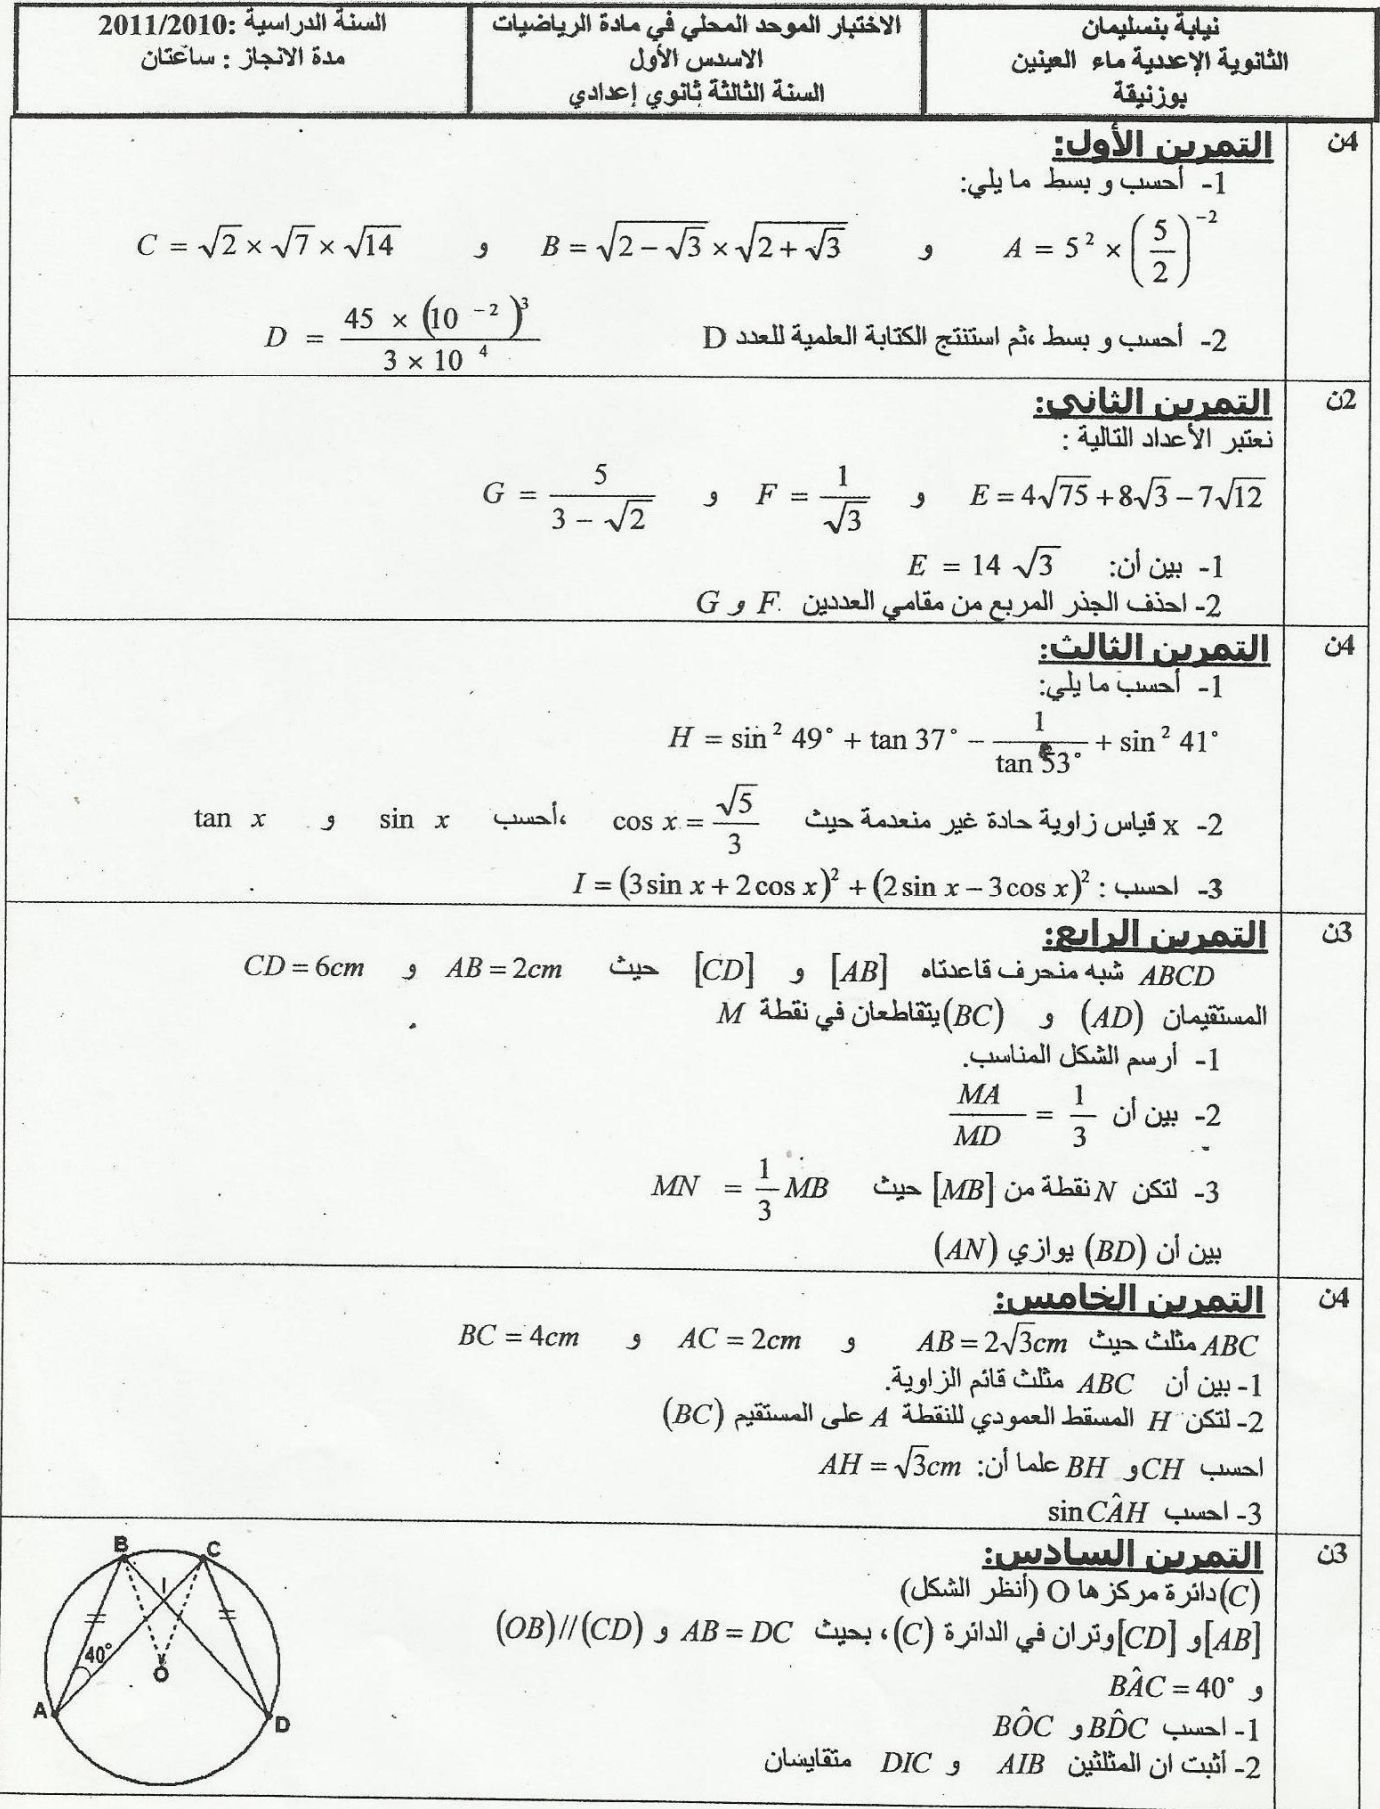 نيابة بنسليمان
الثانوية الإعدادية ماء العينين
بوزنيقة
الاختبار الموحد المحلي في مادة الرياضيات
الاسدس الأول
السنة الثالثة ثانوي إعدادي
السنة الدراسية :2011/2010
مدة الانجاز : ساعتان
4ن
التمرين الأول:
1- أحسب و بسط ما يلي:
A = 5² × (5/2)⁻² و B = √(2 − √3) × √(2 + √3) و C = √2 × √7 × √14
2- أحسب و بسط ،ثم استنتج الكتابة العلمية للعدد D D = (45 × (10⁻²)³) / (3 × 10⁴)
2ن
التمرين الثاني:
نعتبر الأعداد التالية :
E = 4√75 + 8√3 − 7√12 و F = 1/√3 و G = 5/(3 − √2)
1- بين أن: E = 14√3
2- احذف الجذر المربع من مقامي العددين F و G
4ن
التمرين الثالث:
1- أحسب ما يلي:
H = sin² 49° + tan 37° − 1/(tan 53°) + sin² 41°
2- x قياس زاوية حادة غير منعدمة حيث cos x = √5/3 ،أحسب sin x و tan x
3- احسب : I = (3 sin x + 2 cos x)² + (2 sin x − 3 cos x)²
3ن
التمرين الرابع:
ABCD شبه منحرف قاعدتاه [AB] و [CD] حيث AB = 2cm و CD = 6cm
المستقيمان (AD) و (BC) يتقاطعان في نقطة M
1- أرسم الشكل المناسب.
2- بين أن MA/MD = 1/3
3- لتكن N نقطة من [MB] حيث MN = 1/3 MB
بين أن (BD) يوازي (AN)
4ن
التمرين الخامس:
ABC مثلث حيث AB = 2√3cm و AC = 2cm و BC = 4cm
1- بين أن ABC مثلث قائم الزاوية.
2- لتكن H المسقط العمودي للنقطة A على المستقيم (BC)
احسب CH و BH علما أن: AH = √3cm
3- احسب sin CÂH
3ن
التمرين السادس:
(C) دائرة مركزها O (أنظر الشكل)
[AB] و [CD] وتران في الدائرة (C)، بحيث AB = DC و (OB)//(CD)
و BÂC = 40°
1- احسب BD̂C و BÔC
2- أثبت ان المثلثين AIB و DIC متقايسان
B C
I
40°
O
A D